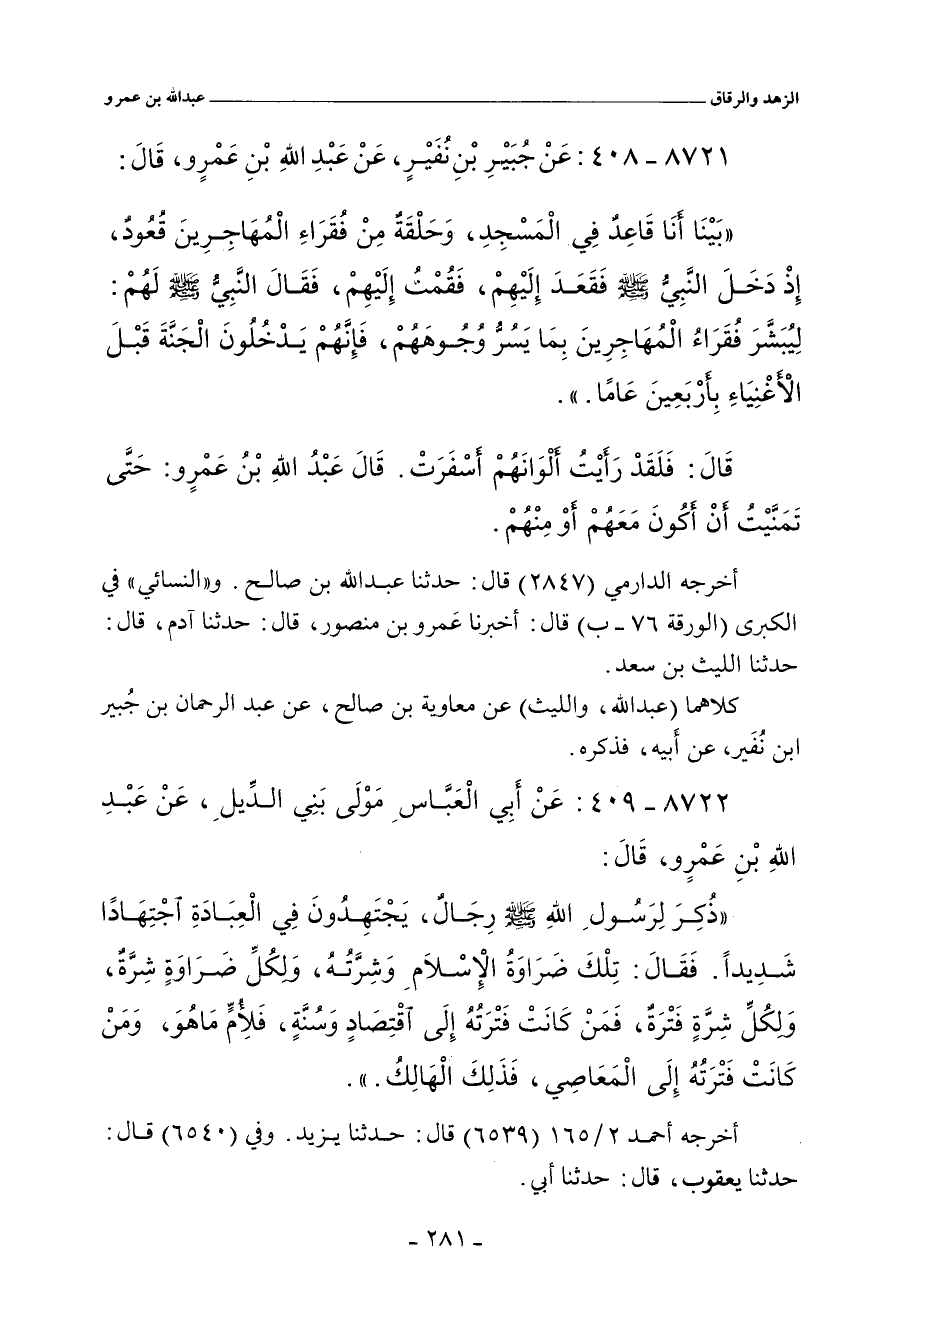 الزهد والرقاق ــــــــــــــــــــ عبدالله بن عمرو
٨٧٢١ - ٤٠٨ : عَنْ جُبَيْرِ بْنِ نُفَيْرٍ، عَنْ عَبْدِ اللهِ بْنِ عَمْرٍو، قَالَ :
«بَيْنَا أَنَا قَاعِدٌ فِي الْمَسْجِدِ، وَحَلْقَةٌ مِنْ فُقَرَاءِ الْمُهَاجِرِينَ قُعُودٌ،
إِذْ دَخَلَ النَّبِيُّ ﷺ فَقَعَدَ إِلَيْهِمْ، فَقُمْتُ إِلَيْهِمْ، فَقَالَ النَّبِيُّ ﷺ لَهُمْ :
لِيُبَشَّرَ فُقَرَاءُ الْمُهَاجِرِينَ بِمَا يَسُرُّ وُجُوهَهُمْ، فَإِنَّهُمْ يَدْخُلُونَ الْجَنَّةَ قَبْلَ
الْأَغْنِيَاءِ بِأَرْبَعِينَ عَامًا . » .
قَالَ : فَلَقَدْ رَأَيْتُ أَلْوَانَهُمْ أَسْفَرَتْ . قَالَ عَبْدُ اللهِ بْنُ عَمْرٍو : حَتَّى
تَمَنَّيْتُ أَنْ أَكُونَ مَعَهُمْ أَوْ مِنْهُمْ .
أخرجه الدارمي (٢٨٤٧) قال : حدثنا عبدالله بن صالح . و«النسائي» في
الكبرى (الورقة ٧٦ - ب) قال : أخبرنا عَمرو بن منصور، قال : حدثنا آدم، قال :
حدثنا الليث بن سعد .
كلاهما (عبدالله، والليث) عن معاوية بن صالح، عن عبد الرحمان بن جُبير
ابن نُفَير، عن أبيه، فذكره .
٨٧٢٢ - ٤٠٩ : عَنْ أَبِي الْعَبَّاسِ مَوْلَى بَنِي الدِّيلِ، عَنْ عَبْدِ
اللهِ بْنِ عَمْرٍو، قَالَ :
«ذُكِرَ لِرَسُولِ اللهِ ﷺ رِجَالٌ، يَجْتَهِدُونَ فِي الْعِبَادَةِ ٱجْتِهَادًا
شَدِيداً . فَقَالَ : تِلْكَ ضَرَاوَةُ الْإِسْلَامِ وَشِرَّتُهُ، وَلِكُلِّ ضَرَاوَةٍ شِرَّةٌ،
وَلِكُلِّ شِرَّةٍ فَتْرَةٌ، فَمَنْ كَانَتْ فَتْرَتُهُ إِلَى ٱقْتِصَادٍ وَسُنَّةٍ، فَلِأُمٍّ مَاهُوَ، وَمَنْ
كَانَتْ فَتْرَتُهُ إِلَى الْمَعَاصِي، فَذَلِكَ الْهَالِكُ . » .
أخرجه أحمد ١٦٥/٢ (٦٥٣٩) قال : حدثنا يزيد . وفي (٦٥٤٠) قال :
حدثنا يعقوب، قال : حدثنا أبي .
- ٢٨١ -